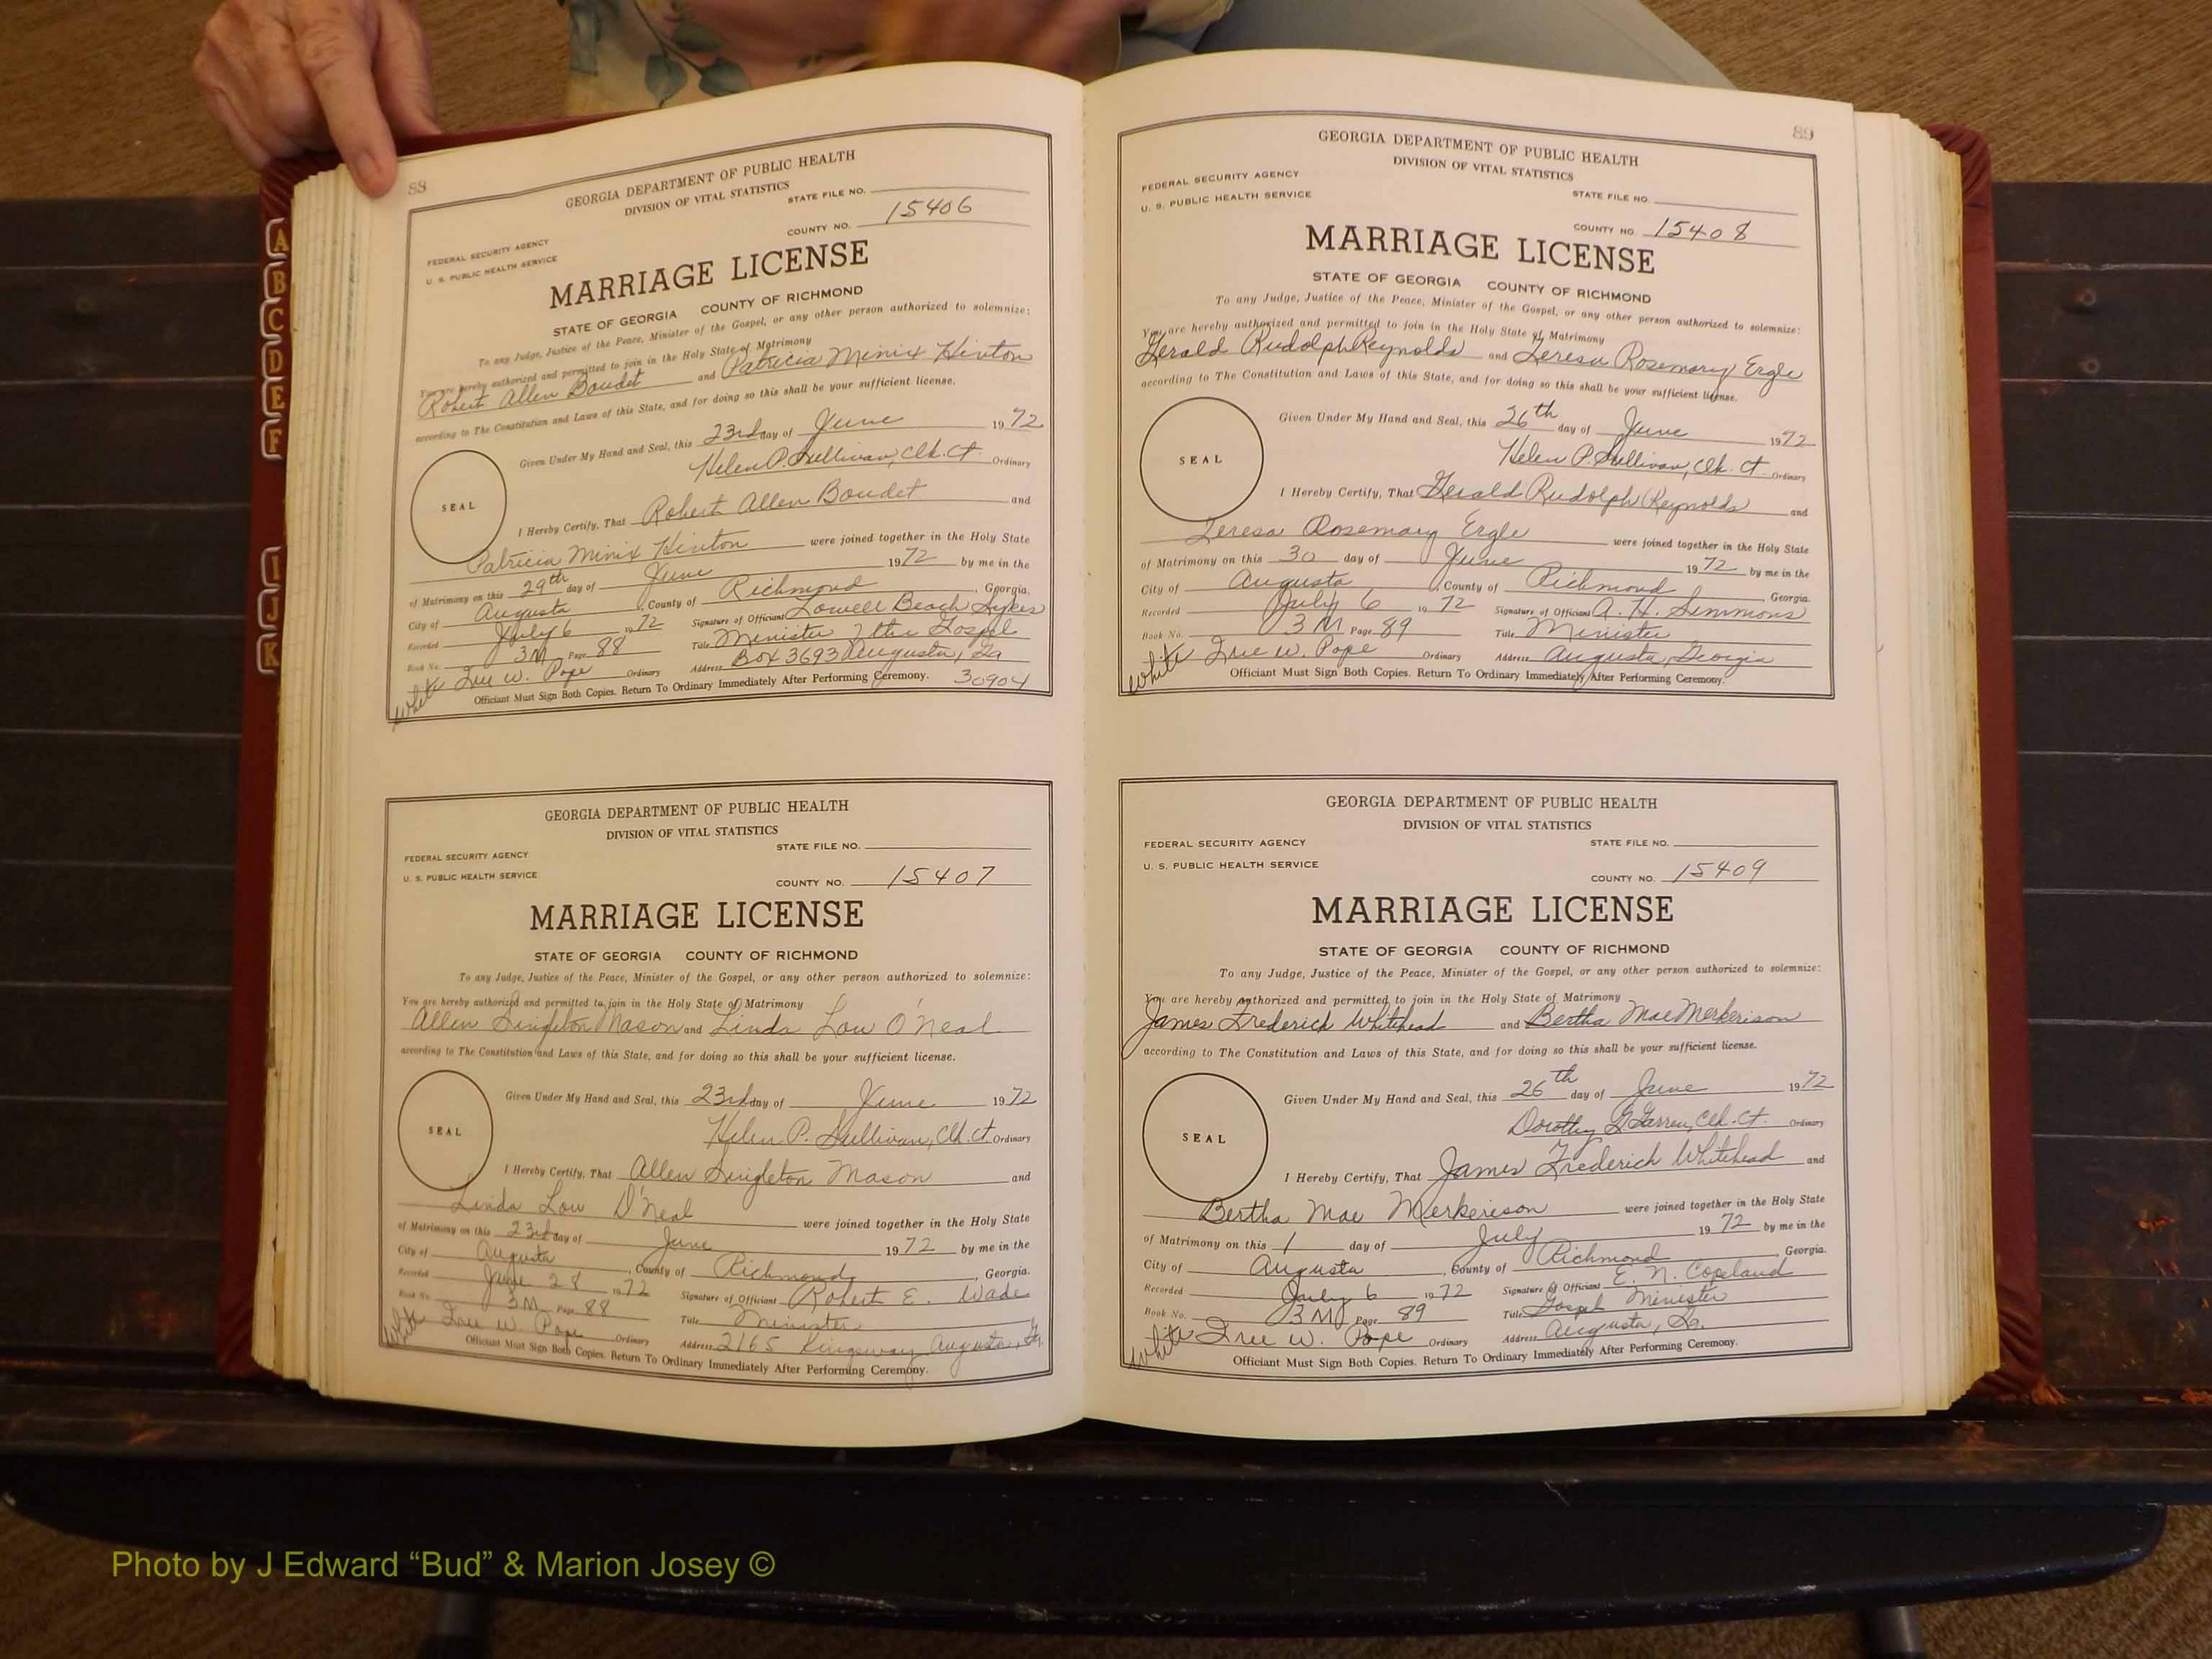 88
GEORGIA DEPARTMENT OF PUBLIC HEALTH
DIVISION OF VITAL STATISTICS
STATE FILE NO.
COUNTY NO. 15406
FEDERAL SECURITY AGENCY
U. S. PUBLIC HEALTH SERVICE
MARRIAGE LICENSE
STATE OF GEORGIA COUNTY OF RICHMOND
To any Judge, Justice of the Peace, Minister of the Gospel, or any other person authorized to solemnize:
You are hereby authorized and permitted to join in the Holy State of Matrimony
Robert Allen Boudet and Patricia Minix Hinton
according to The Constitution and Laws of this State, and for doing so this shall be your sufficient license.
Given Under My Hand and Seal, this 23rd day of June 1972
Helen P. Sullivan, Clk. Ct. Ordinary
SEAL
I Hereby Certify, That Robert Allen Boudet and
Patricia Minix Hinton were joined together in the Holy State
of Matrimony on this 29th day of June 1972 by me in the
City of Augusta, County of Richmond, Georgia.
Recorded July 6 1972 Signature of Officiant Lowell Beach Sykes
Book No. 3M Page 88 Title Minister of the Gospel
Ordinary Address Box 3693 Augusta, Ga
W. Pope
White
Officiant Must Sign Both Copies. Return To Ordinary Immediately After Performing Ceremony. 30904
GEORGIA DEPARTMENT OF PUBLIC HEALTH
DIVISION OF VITAL STATISTICS
STATE FILE NO.
FEDERAL SECURITY AGENCY
U. S. PUBLIC HEALTH SERVICE
COUNTY NO. 15407
MARRIAGE LICENSE
STATE OF GEORGIA COUNTY OF RICHMOND
To any Judge, Justice of the Peace, Minister of the Gospel, or any other person authorized to solemnize:
You are hereby authorized and permitted to join in the Holy State of Matrimony
Allen Singleton Mason and Linda Lou O'Neal
according to The Constitution and Laws of this State, and for doing so this shall be your sufficient license.
Given Under My Hand and Seal, this 23rd day of June 1972
Helen P. Sullivan, Clk. Ct. Ordinary
SEAL
I Hereby Certify, That Allen Singleton Mason and
Linda Lou O'Neal were joined together in the Holy State
of Matrimony on this 23rd day of June 1972 by me in the
City of Augusta, County of Richmond, Georgia.
Recorded June 28 1972 Signature of Officiant Robert E. Wade
Book No. 3M Page 88 Title Minister
White W. Pope Ordinary Address 2165 Kingsway Augusta, Ga.
Officiant Must Sign Both Copies. Return To Ordinary Immediately After Performing Ceremony.
89
GEORGIA DEPARTMENT OF PUBLIC HEALTH
DIVISION OF VITAL STATISTICS
FEDERAL SECURITY AGENCY
U. S. PUBLIC HEALTH SERVICE
STATE FILE NO.
COUNTY NO. 15408
MARRIAGE LICENSE
STATE OF GEORGIA COUNTY OF RICHMOND
To any Judge, Justice of the Peace, Minister of the Gospel, or any other person authorized to solemnize:
You are hereby authorized and permitted to join in the Holy State of Matrimony
Gerald Rudolph Reynolds and Teresa Rosemary Ergle
according to The Constitution and Laws of this State, and for doing so this shall be your sufficient license.
Given Under My Hand and Seal, this 26th day of June 1972
Helen P. Sullivan, Clk. Ct. Ordinary
SEAL
I Hereby Certify, That Gerald Rudolph Reynolds and
Teresa Rosemary Ergle were joined together in the Holy State
of Matrimony on this 30 day of June 1972 by me in the
City of Augusta, County of Richmond Georgia.
Recorded July 6 1972 Signature of Officiant A. H. Simmons
Book No. 3M Page 89 Title Minister
White W. Pope Ordinary Address Augusta, Georgia
Officiant Must Sign Both Copies. Return To Ordinary Immediately After Performing Ceremony.
GEORGIA DEPARTMENT OF PUBLIC HEALTH
DIVISION OF VITAL STATISTICS
FEDERAL SECURITY AGENCY
U. S. PUBLIC HEALTH SERVICE
STATE FILE NO.
COUNTY NO. 15409
MARRIAGE LICENSE
STATE OF GEORGIA COUNTY OF RICHMOND
To any Judge, Justice of the Peace, Minister of the Gospel, or any other person authorized to solemnize:
You are hereby authorized and permitted to join in the Holy State of Matrimony
James Frederick Whitehead and Bertha Mae Merkerison
according to The Constitution and Laws of this State, and for doing so this shall be your sufficient license.
Given Under My Hand and Seal, this 26th day of June 1972
Dorothy Clk. Ct. Ordinary
SEAL
I Hereby Certify, That James Frederick Whitehead and
Bertha Mae Merkerison were joined together in the Holy State
of Matrimony on this 1 day of July 1972 by me in the
City of Augusta, County of Richmond, Georgia.
Recorded July 6 1972 Signature of Officiant E. N. Copeland
Book No. 3M Page 89 Title Gospel Minister
White W. Pope Ordinary Address Augusta, Ga.
Officiant Must Sign Both Copies. Return To Ordinary Immediately After Performing Ceremony.
A
B
C
D
E
F
I
J
K
Photo by J Edward “Bud” & Marion Josey ©